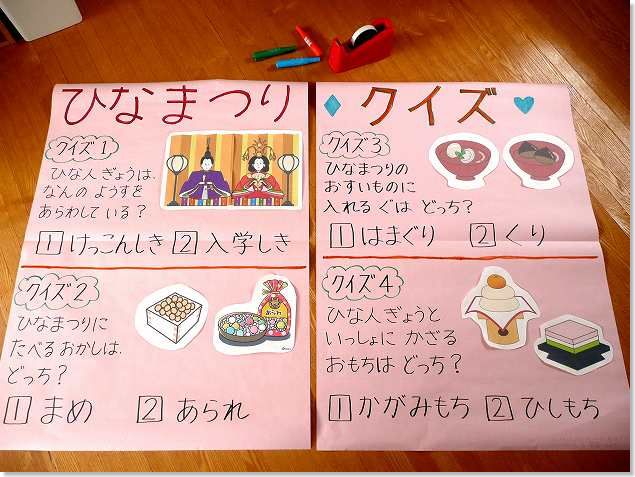 ひなまつり
クイズ
クイズ1
ひな人ぎょうは、
なんの ようすを
あらわして いる?
1 けっこんしき 2 入学しき
クイズ2
ひなまつりに
たべる おかしは、
どっち?
あられ
1 まめ 2 あられ
クイズ3
ひなまつりの
おすいものに
入れる ぐは どっち?
1 はまぐり 2 くり
クイズ4
ひな人ぎょうと
いっしょに かざる
おもちは どっち?
1 かがみもち 2 ひしもち